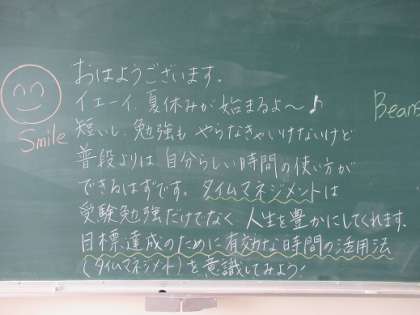 おはようございます。
イエーイ、夏休みが始まるよ〜♪
短いし、勉強も やらなきゃいけないけど
普段よりは 自分らしい時間の使い方が
できるはずです。タイムマネジメントは
受験勉強だけでなく 人生を豊かにしてくれます。
目標達成のために有効な時間の活用法
(タイムマネジメント)を意識してみよう!
Smile
Beans